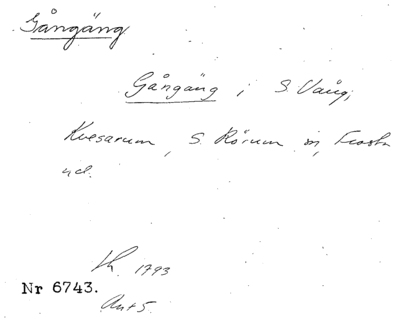 Gångäng
Gångäng i S. Vång,
Kvesarum, S. Rörum sn, Frosta
hd.
1793
Nr 6743.
Ant 5.